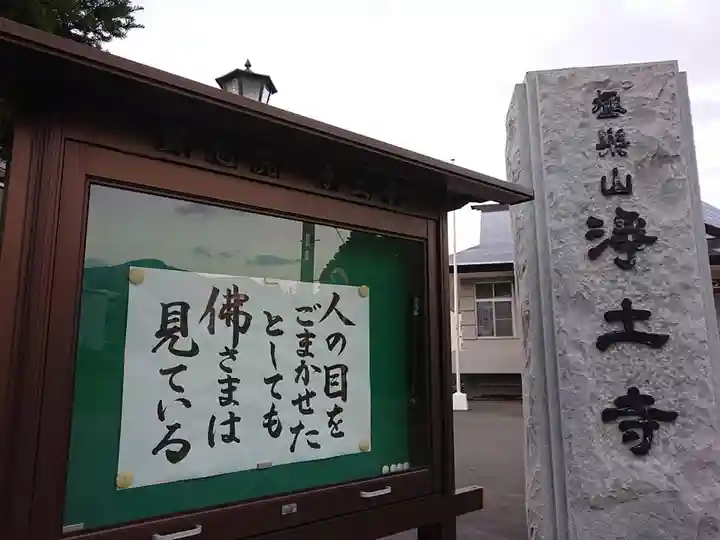 人の目を
ごまかせた
としても
佛さまは
見ている
極樂山
浄土寺